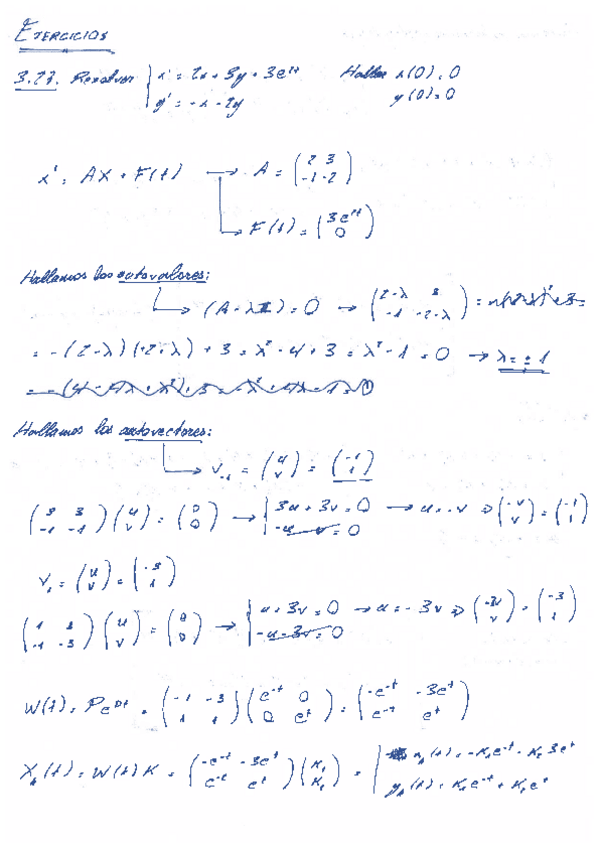 EJERCICIOS
3.27. Resolver { x' = 2x + 3y + 3e^2t   Hallar x(0) = 0
y' = -x - 2y   y(0) = 0
x' = AX + F(t) → A = (2 3 / -1 -2)
→ F(t) = (3e^2t / 0)
Hallamos los autovalores:
→ (A - λI) = 0 → (2-λ 3 / -1 -2-λ) =
= -(2-λ)(+2+λ) + 3 = λ² - 4 + 3 = λ² - 1 = 0 → λ = ± 1
Hallamos los autovectores:
→ V₋₁ = (u / v) = (-1 / 1)
(3 3 / -1 -1)(u / v) = (0 / 0) → { 3u + 3v = 0 / -u - v = 0 → u = -v ⇒ (-v / v) = (-1 / 1)
V₁ = (u / v) = (-3 / 1)
(1 3 / -1 -3)(u / v) = (0 / 0) → { u + 3v = 0 / -u - 3v = 0 → u = -3v ⇒ (-3v / v) = (-3 / 1)
W(t) = Pe^Dt = (-1 -3 / 1 1)(e^-t 0 / 0 e^t) = (-e^-t -3e^t / e^-t e^t)
X_h(t) = W(t)K = (-e^-t -3e^t / e^-t e^t)(K₁ / K₂) = { x_h(t) = -K₁e^-t - K₂3e^t / y_h(t) = K₁e^-t + K₂e^t